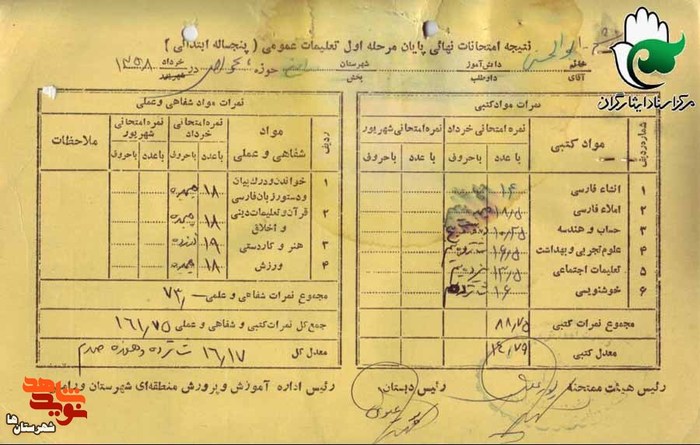 نتیجه امتحانات نهائی پایان مرحله اول تعلیمات عمومی ( پنجساله ابتدائی )
خانم
آقای
ابوالحسن
دانش‌آموز
داوطلب
شهرستان
بخش
حوزه
در خرداد
شهریور
۱۳۵۸
مرکز اسناد ایثارگران
نمرات مواد کتبی
شماره ردیف
مواد کتبی
نمره امتحانی خرداد
نمره امتحانی شهریور
با عدد
با حروف
با عدد
با حروف
۱ انشاء فارسی ۱۴
۲ املاء فارسی ۱۸/۵
۳ حساب و هندسه ۱۰/۲۵
۴ علوم تجربی و بهداشت
۵ تعلیمات اجتماعی
۶ خوشنویسی ۱۶ شانزده
مجموع نمرات کتبی ۸۸/۷۵
معدل کتبی ۱۴/۷۹
نمرات مواد شفاهی و عملی
ردیف
مواد شفاهی و عملی
نمره امتحانی خرداد
نمره امتحانی شهریور
ملاحظات
با عدد
با حروف
با عدد
با حروف
۱ خواندن و درک بیان و دستور زبان فارسی ۱۸ هیجده
۲ قرآن و تعلیمات دینی و اخلاق ۱۸ هیجده
۳ هنر و کاردستی ۱۹ نوزده
۴ ورزش ۱۸ هیجده
مجموع نمرات شفاهی و علمی ۷۳
جمع کل نمرات کتبی و شفاهی و عملی ۱۶۱/۷۵
معدل کل ۱۶/۱۷ شانزده و هفده صدم
رئیس هیئت ممتحنه
رئیس دبستان
رئیس اداره آموزش و پرورش منطقه‌ای شهرستان و
نوید شاهد
شهرستان‌ها